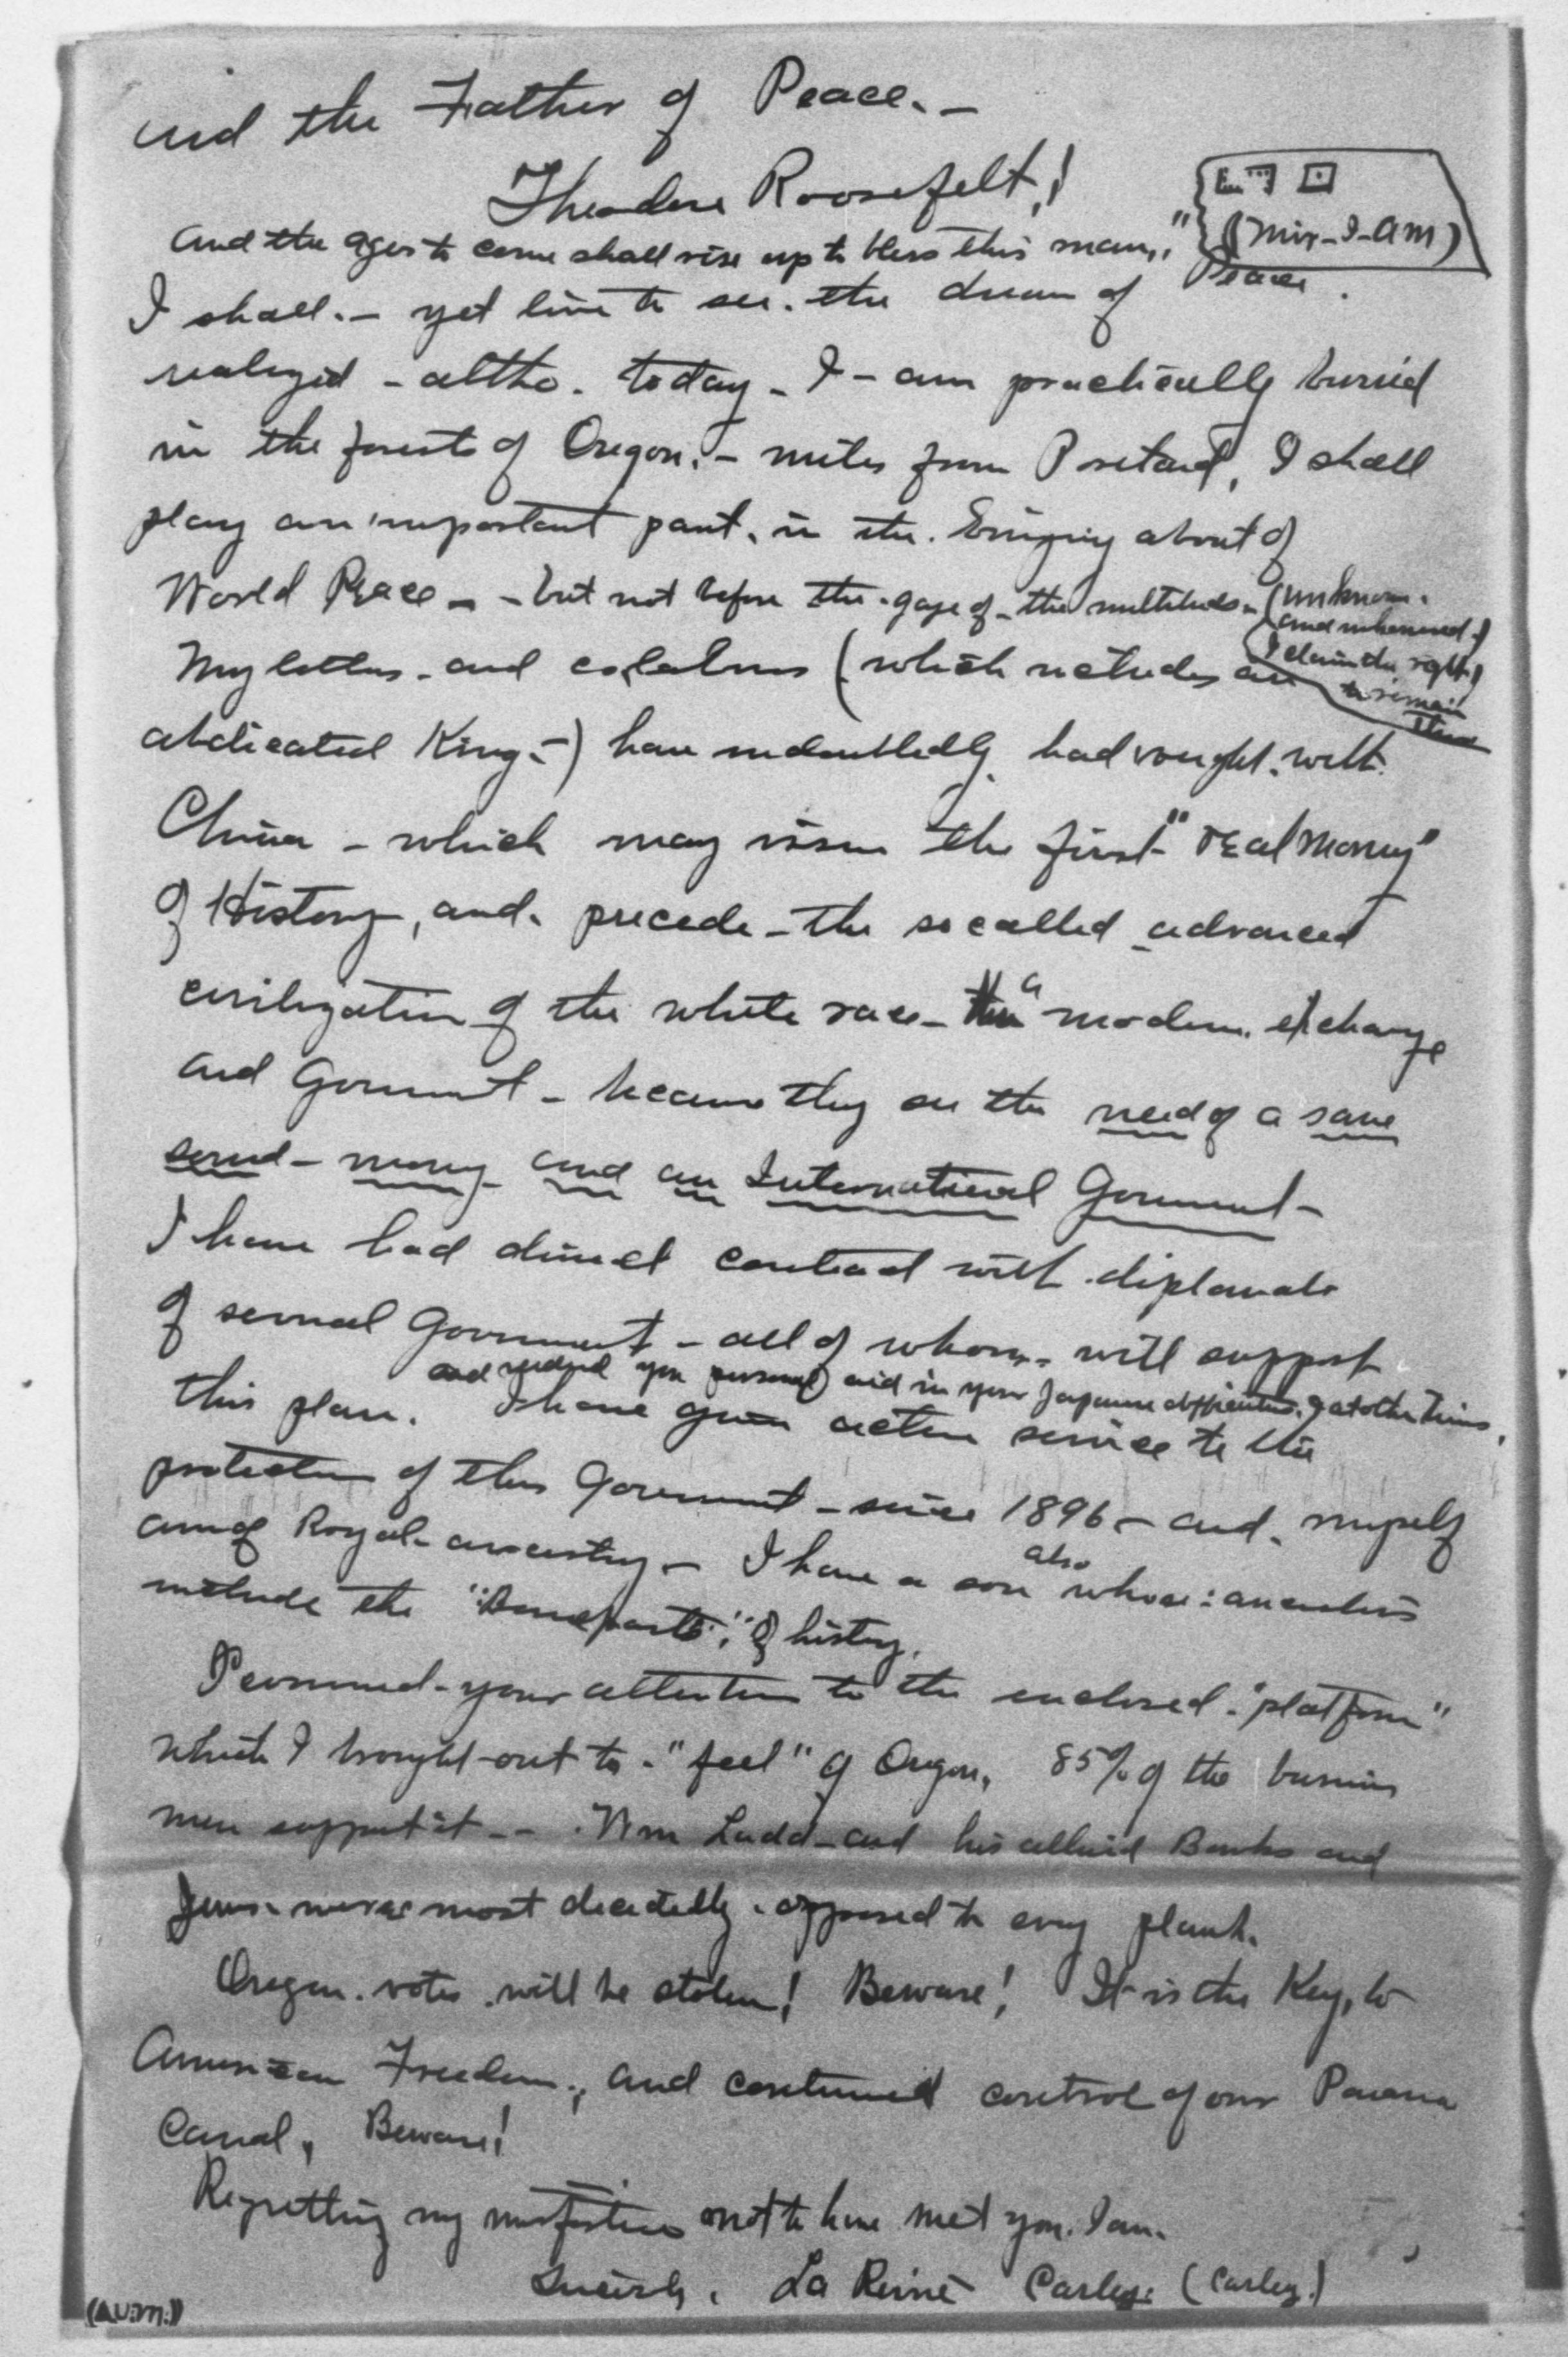 and the Father of Peace. —
Theodore Roosefelt,!
(Mir-I-am)
and the ages to come shall rise up to bless this man,"
I shall. — yet live to see. the dream of Peace.
realized — altho. today — I — am practically buried
in the forests of Oregon, — miles from Portland, I shall
play an important part, in the. bringing about of
World Peace — — but not before the. gaze of — the multitude — (unknown.
and unhonored)
I claim the right)
to remain
thus
My letters. and (which includes an
abdicated King —) have undoubtedly had weight. with
China — which may issue the first "real money"
of History, and. precede — the so called advanced
civilization of the white race — a modern. exchange
and Government — because they see the need of a sane
sound — money — and an International Government —
I have had direct contact with diplomats
of several Government — all of whom. will support
and rendered you personal aid in your Japanese difficulties. & at other times.
this plan. I have given active service to the
protection of this Government — since 1896 — and. myself
am of Royal — ancestry — I have a son also whose ancestors
include the "Bonaparte," of history.
I commend — your attention to the enclosed — "platform"
which I brought out to — "feel" of Oregon, 85% of the business
men support it — — . Wm Ladd — and his allied Banks and
Jews. were most decidedly. opposed to every plank.
Oregon. votes. will be stolen! Beware! It is the Key, to
American Freedom., and continued control of our Panama
Canal, Beware!
Regretting my misfortune not to have met you. I am.
Sincerely. La Reine Carley: (Carley.)
(Au:m:)